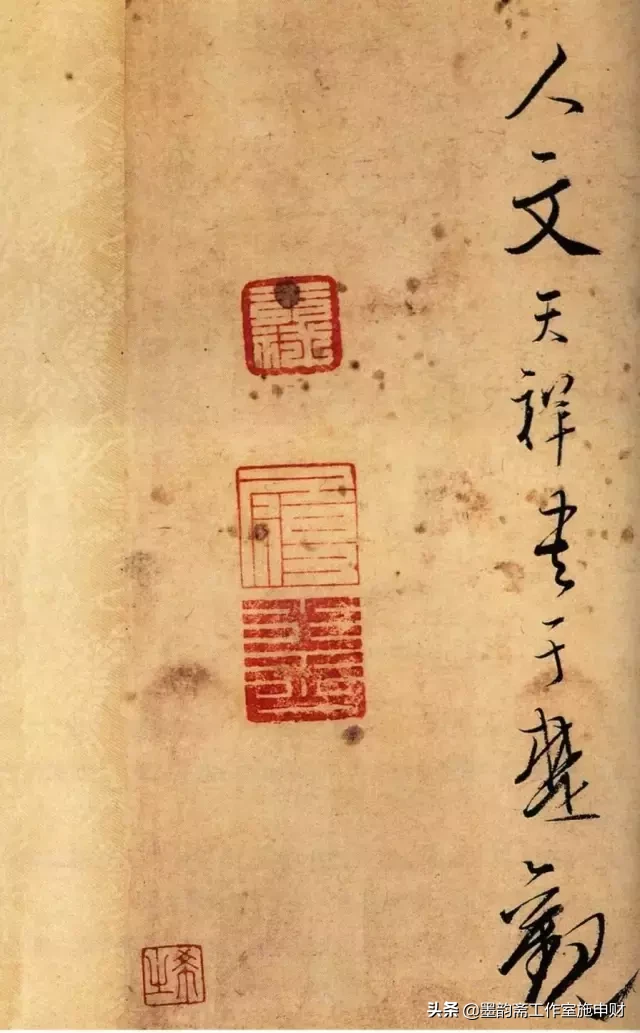 人文天祥書于楚觀
希之
头条 @墨韵斋工作室施申财